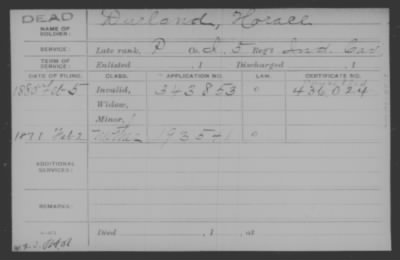 DEAD
NAME OF SOLDIER: Durland, Horace
SERVICE: Late rank, P Co. I, 5 Reg't Ind. Cav.
TERM OF SERVICE: Enlisted , 1 Discharged , 1
DATE OF FILING. CLASS. APPLICATION NO. LAW. CERTIFICATE NO.
1885 Feb 5 Invalid, 343853 0 436024
Widow,
Minor,
Feb 2 Mother 193571 0
ADDITIONAL SERVICES:
REMARKS:
Died , 1 , at